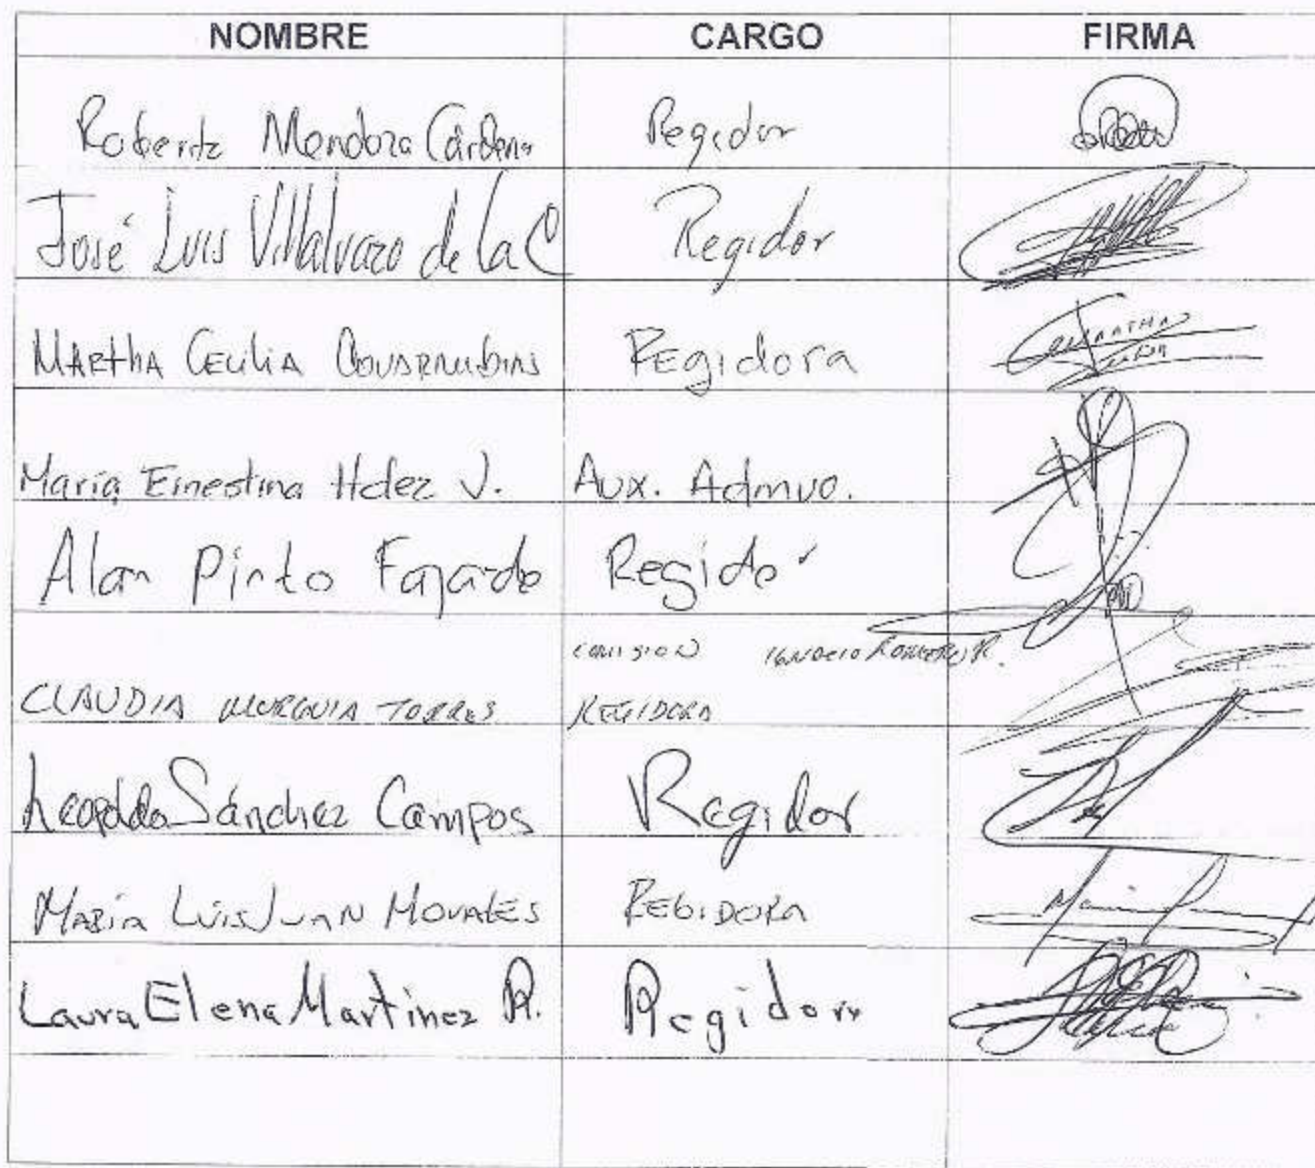 NOMBRE CARGO FIRMA
Roberto Mendoza Cárdenas Regidor
José Luis Villalvazo de la C Regidor
MARTHA CECILIA COVARRUBIAS REgidora
María Ernestina Hdez V. Aux. Admvo.
Alan Pinto Fajardo Regidor
COMISION IGNACIO
CLAUDIA MURGUIA TORRES REGIDORA
Leopoldo Sánchez Campos Regidor
MARÍA LUIS JUAN MORALES REGIDORA
Laura Elena Martínez R. Regidora